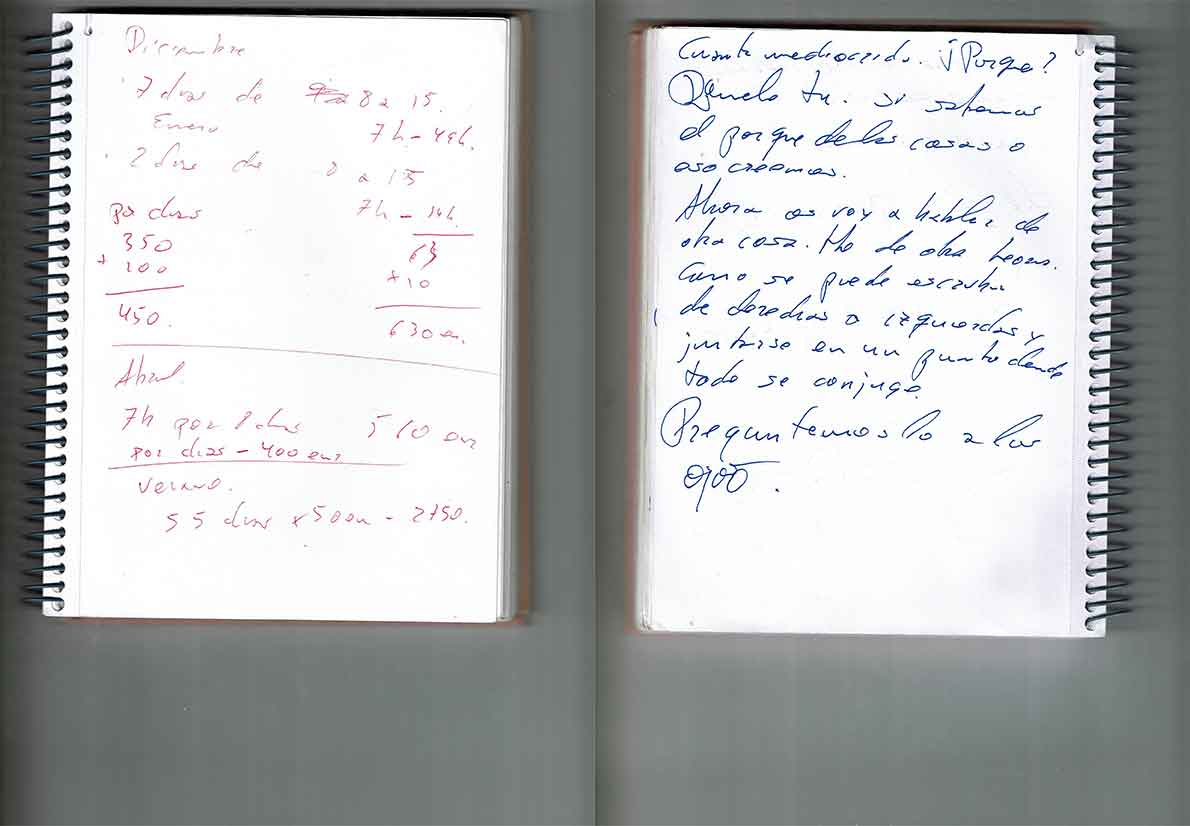 Diciembre
7 dias de 8 a 15.
Enero 7h - 49h.
2 dias de 8 a 15
por dias 7h - 14h.
350 63
+ 100 × 10
450. 630 eu.
Abril.
7h por 8 dias 560 eur
por dias - 400 eur
verano.
55 dias x 50 eu - 2750.
Cuanta mediocridad. ¿Porque?
Dimelo tu. si sabemos
el porque de las cosas o
eso creemos.
Ahora os voy a hablar de
otra cosa. No de otra
Como se puede escribir
de derechas a izquierdas y
juntarse en un punto donde
todo se conjuga.
Preguntemoslo a los
ojos.